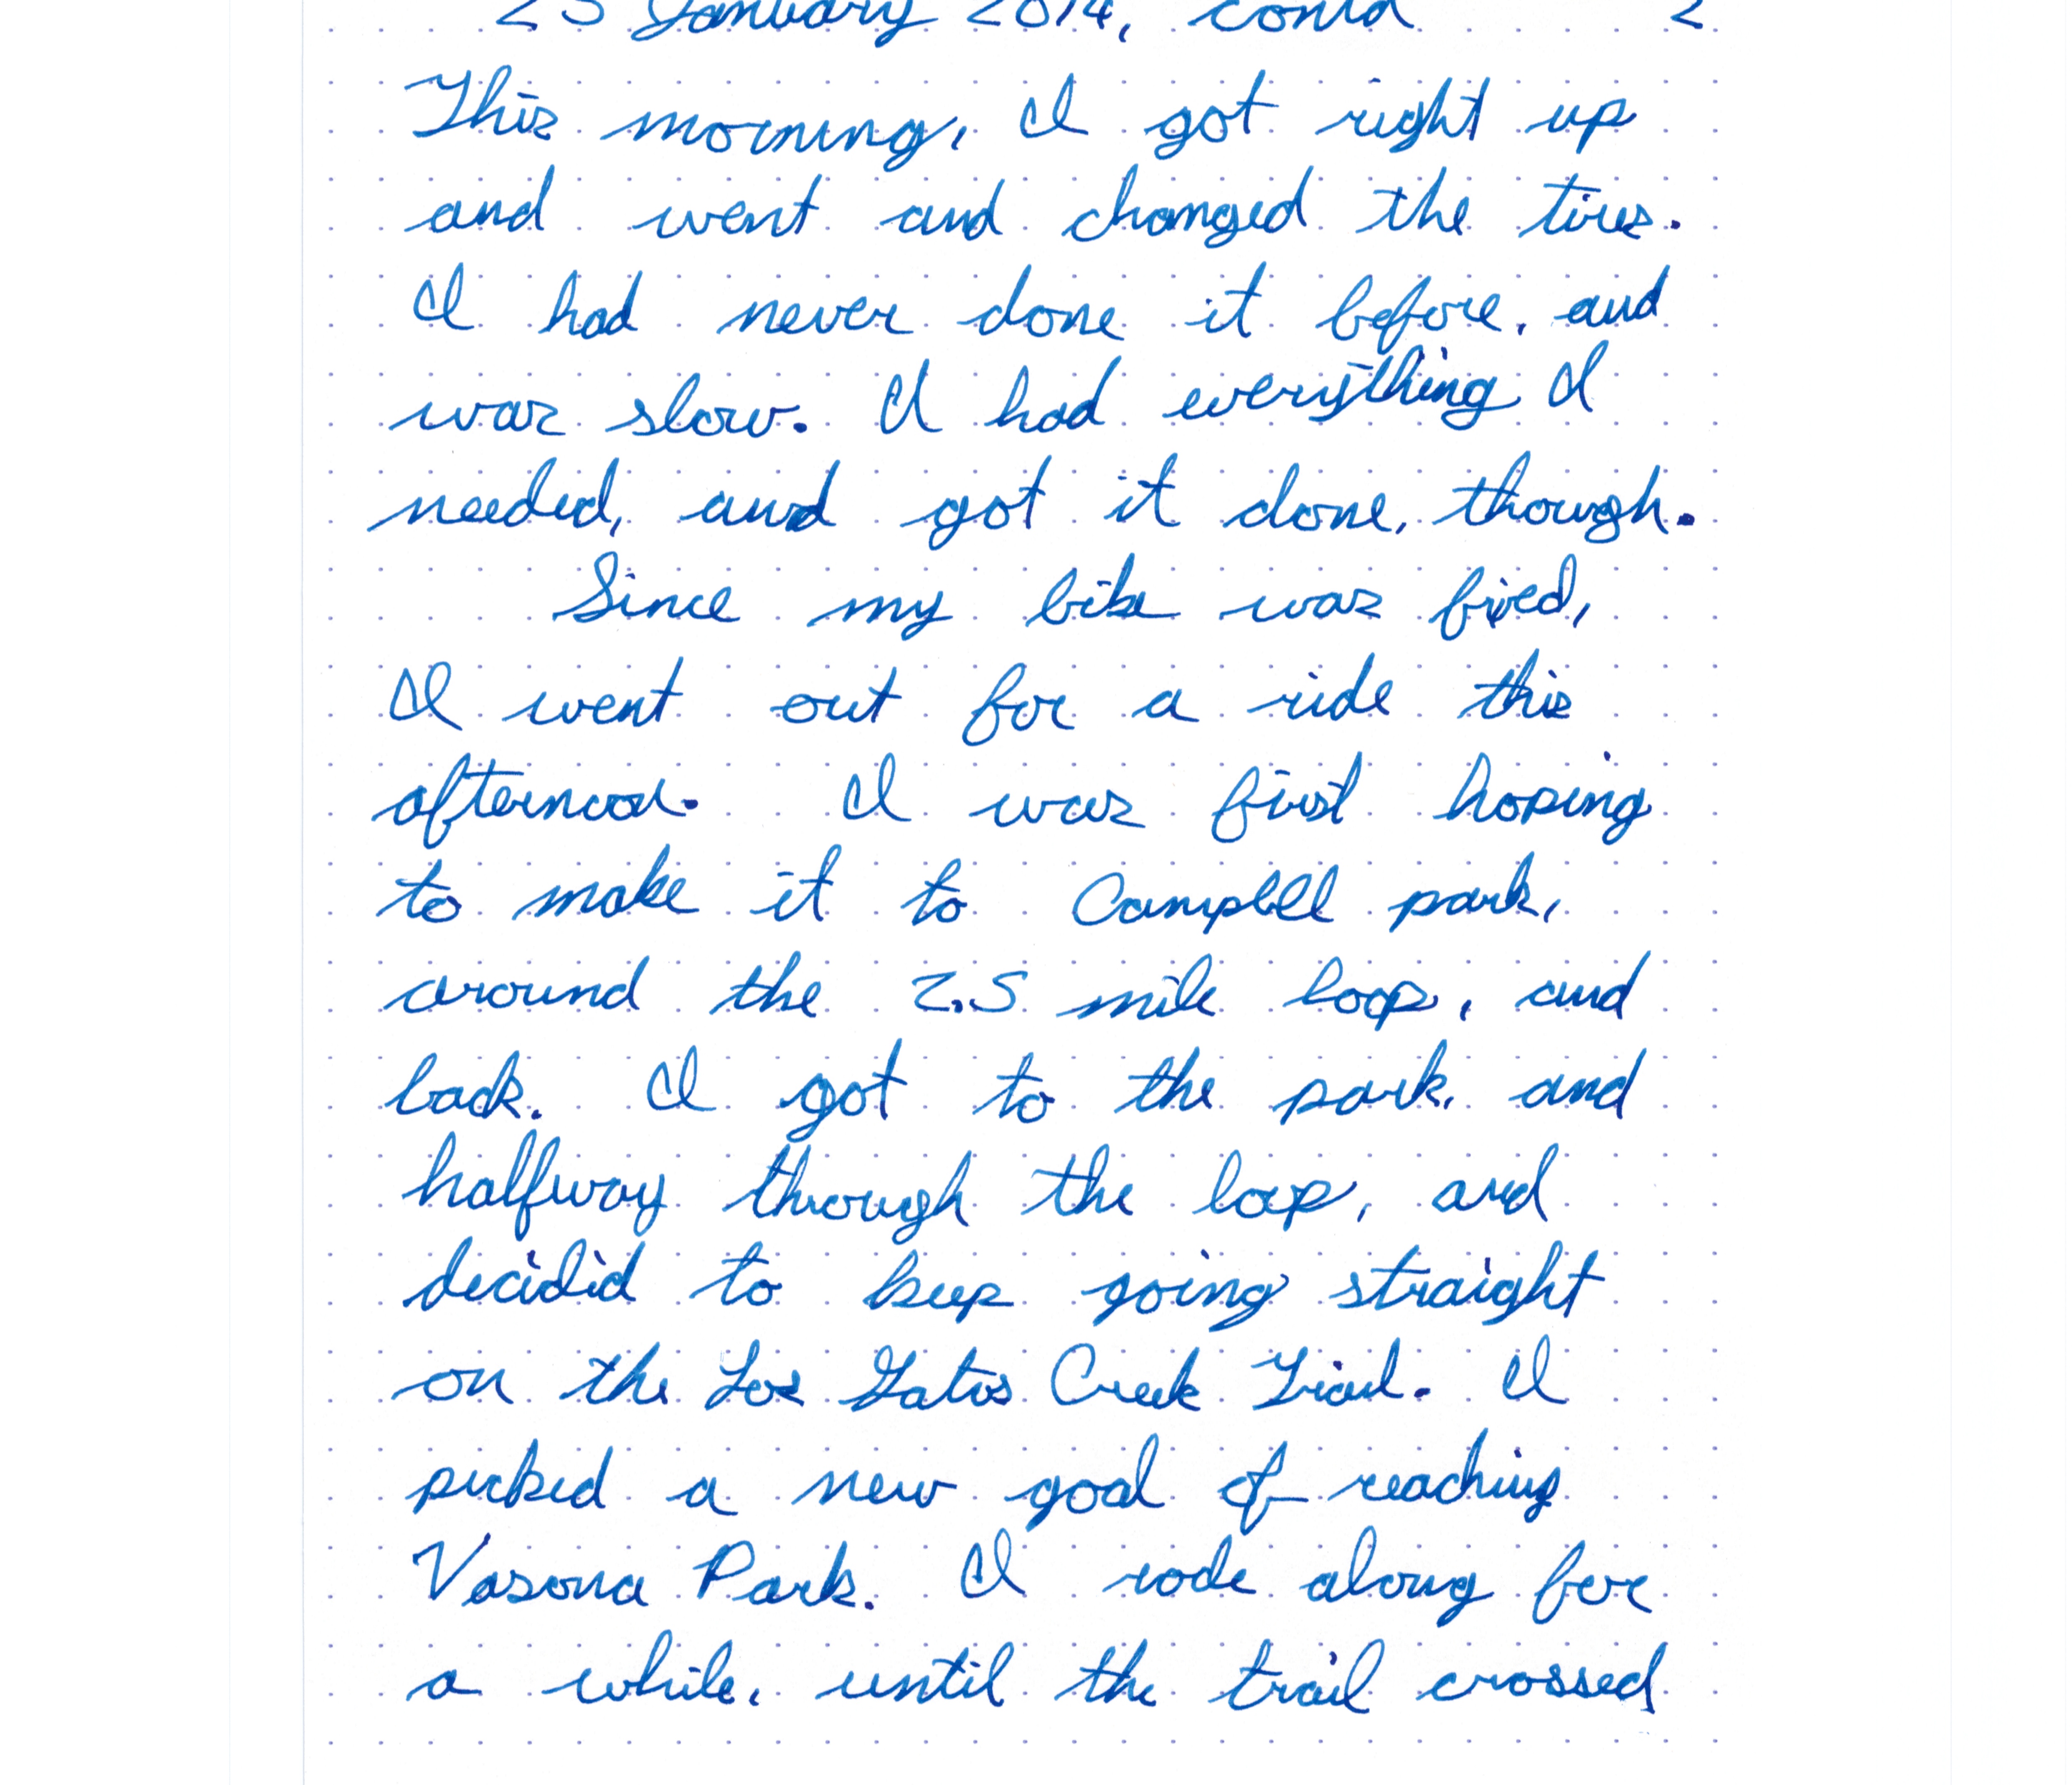 25 January 2014, cont'd 2
This morning, I got right up
and went and changed the tires.
I had never done it before, and
was slow. I had everything I
needed, and got it done, though.
Since my bike was fixed,
I went out for a ride this
afternoon. I was first hoping
to make it to Campbell park,
around the 2.5 mile loop, and
back. I got to the park, and
halfway through the loop, and
decided to keep going straight
on the Los Gatos Creek Trail. I
picked a new goal of reaching
Vasona Park. I rode along for
a while, until the trail crossed